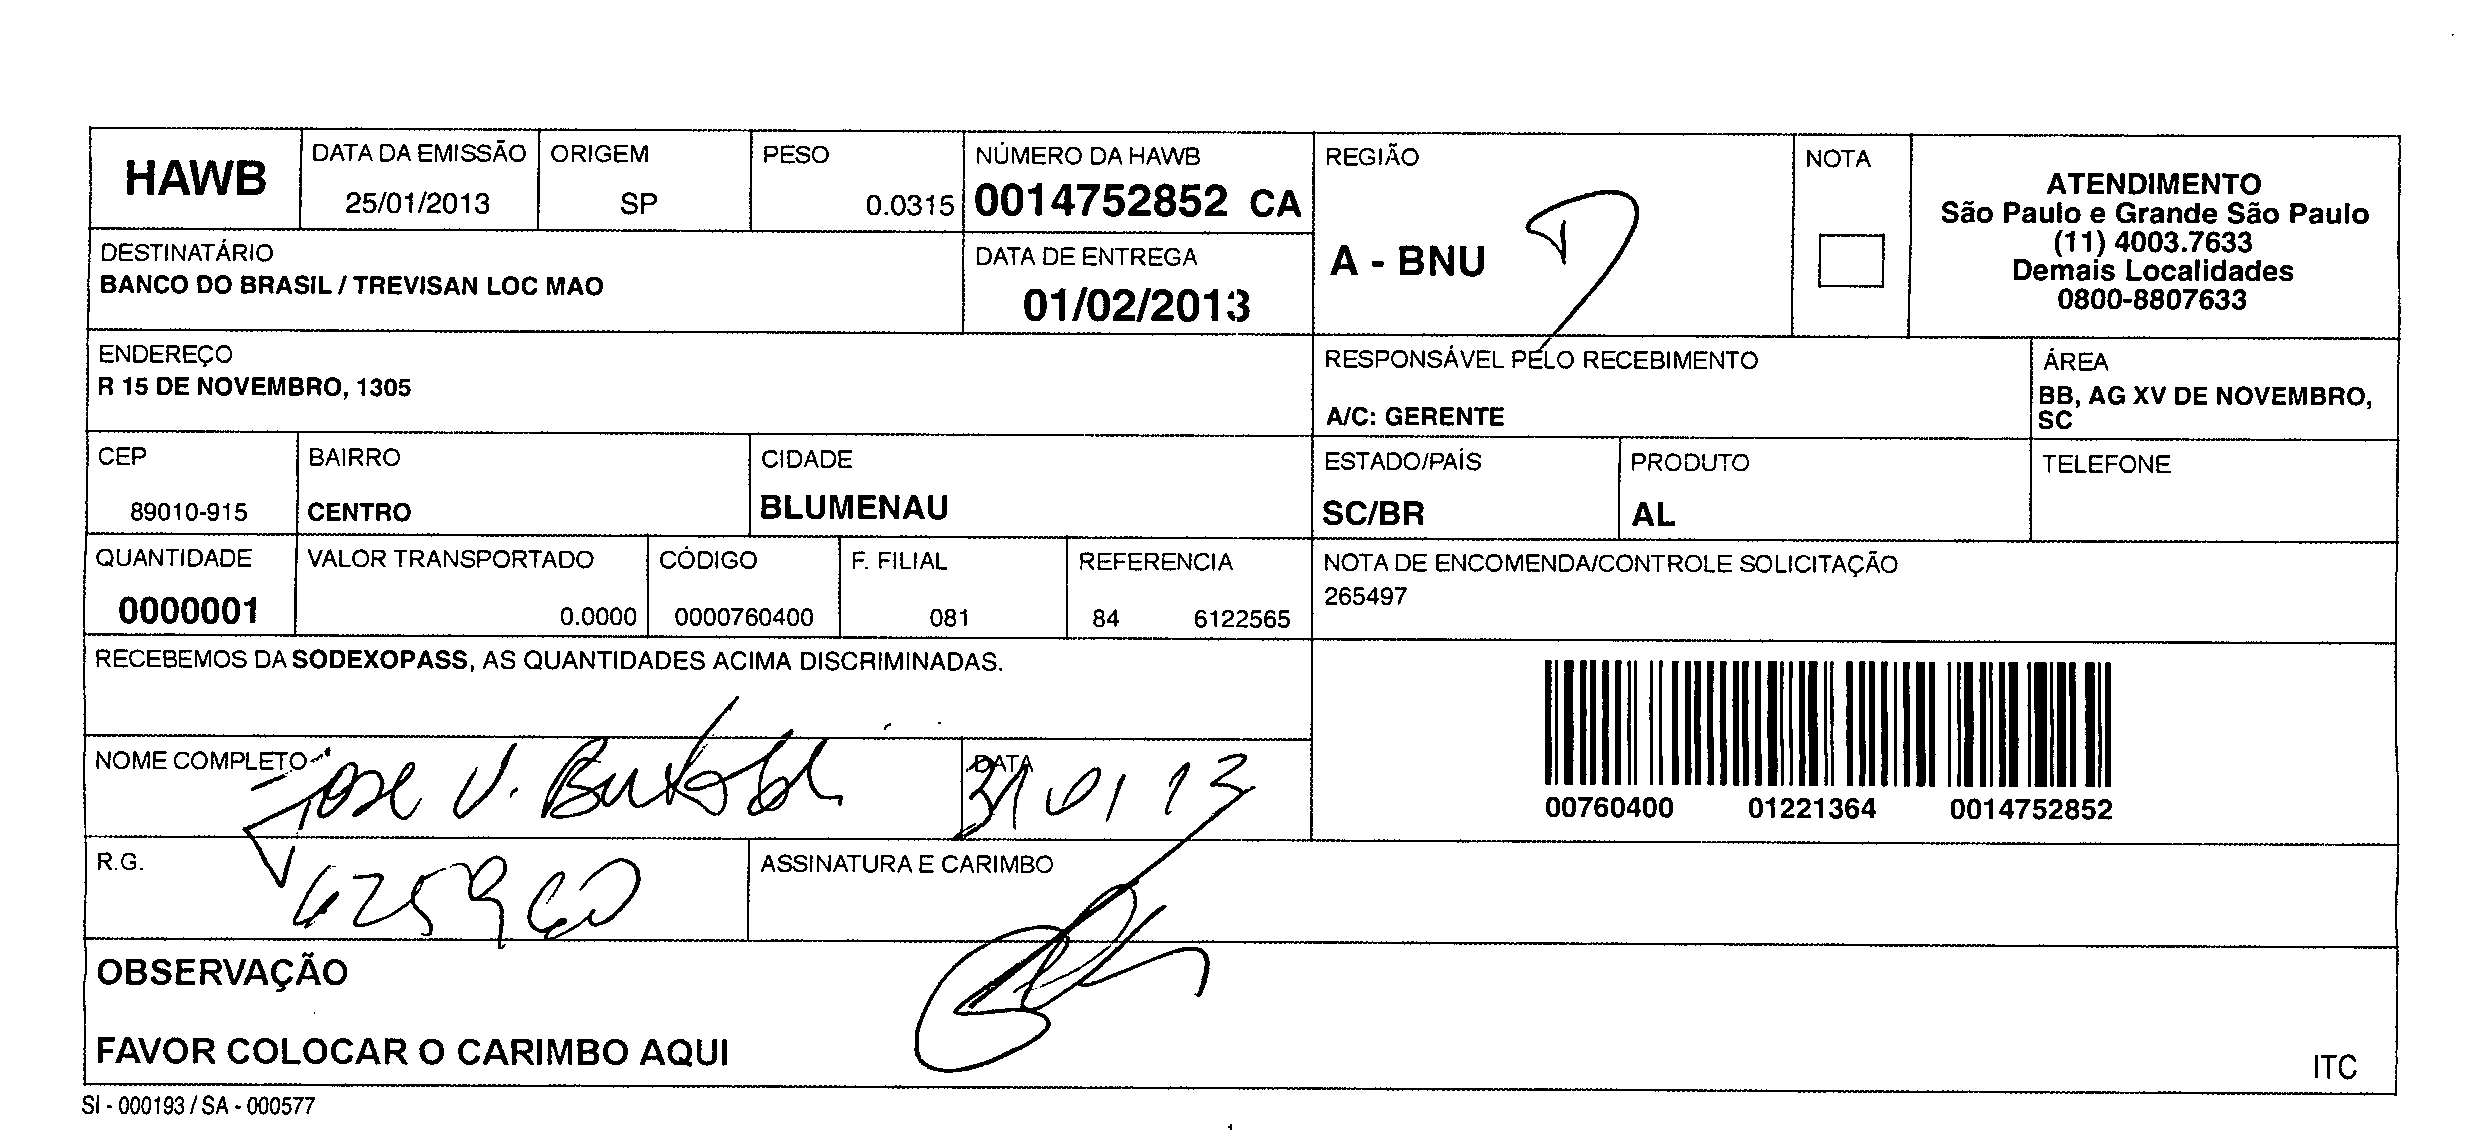 HAWB
DATA DA EMISSÃO
25/01/2013
ORIGEM
SP
PESO
0.0315
NÚMERO DA HAWB
0014752852 CA
REGIÃO
A - BNU
NOTA
ATENDIMENTO
São Paulo e Grande São Paulo
(11) 4003.7633
Demais Localidades
0800-8807633
DESTINATÁRIO
BANCO DO BRASIL / TREVISAN LOC MAO
DATA DE ENTREGA
01/02/2013
ENDEREÇO
R 15 DE NOVEMBRO, 1305
RESPONSÁVEL PELO RECEBIMENTO
A/C: GERENTE
ÁREA
BB, AG XV DE NOVEMBRO,
SC
CEP
89010-915
BAIRRO
CENTRO
CIDADE
BLUMENAU
ESTADO/PAÍS
SC/BR
PRODUTO
AL
TELEFONE
QUANTIDADE
0000001
VALOR TRANSPORTADO
0.0000
CÓDIGO
0000760400
F. FILIAL
081
REFERENCIA
84 6122565
NOTA DE ENCOMENDA/CONTROLE SOLICITAÇÃO
265497
RECEBEMOS DA SODEXOPASS, AS QUANTIDADES ACIMA DISCRIMINADAS.
00760400 01221364 0014752852
NOME COMPLETO
Jose V.
DATA
31 01 13
R.G.
625960
ASSINATURA E CARIMBO
OBSERVAÇÃO
FAVOR COLOCAR O CARIMBO AQUI
ITC
SI - 000193 / SA - 000577